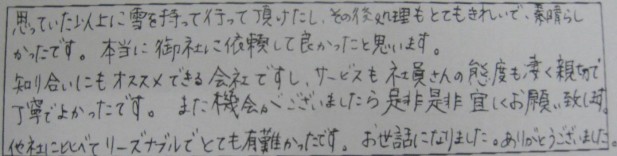 思っていた以上に雪を持って行って頂けたし、その後処理もとてもきれいで、素晴らし
かったです。本当に御社に依頼して良かったと思います。
知り合いにもオススメできる会社ですし、サービスも社員さんの態度も凄く親切で
丁寧でよかったです。また機会がございましたら是非是非宜しくお願い致します。
他社に比べてリーズナブルでとても有難かったです。お世話になりました。ありがとうございました。